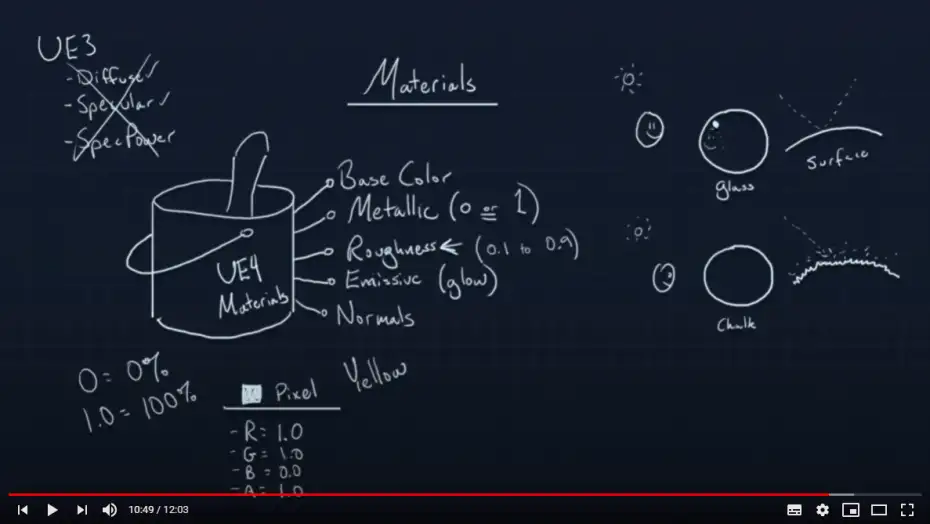 UE3
- Diffuse ✓
- Specular ✓
- SpecPower
Materials
Base Color
Metallic (0 or 1)
Roughness ← (0.1 to 0.9)
Emissive (glow)
Normals
UE4
Materials
Glass
Surface
Chalk
0 = 0%
1.0 = 100%
Pixel
Yellow
- R = 1.0
- G = 1.0
- B = 0.0
- A = 1.0
10:49 / 12:03